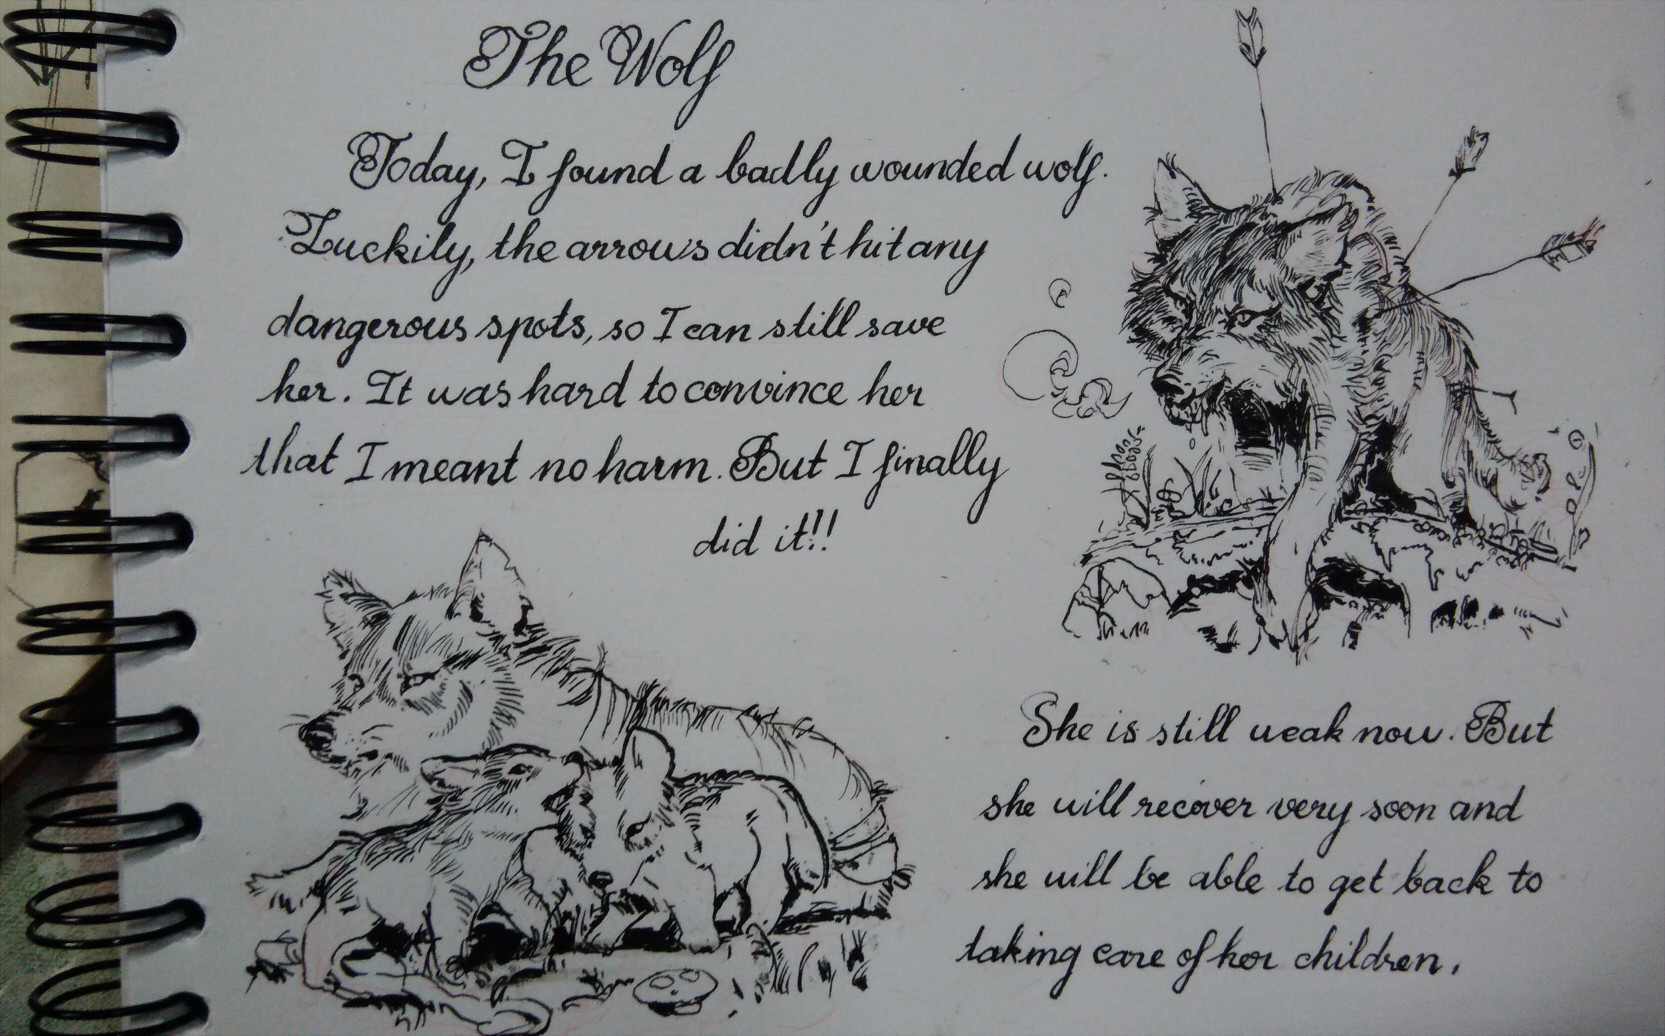 The Wolf
Today, I found a badly wounded wolf.
Luckily, the arrows didn't hit any
dangerous spots, so I can still save
her. It was hard to convince her
that I meant no harm. But I finally
did it!!
She is still weak now. But
she will recover very soon and
she will be able to get back to
taking care of her children.